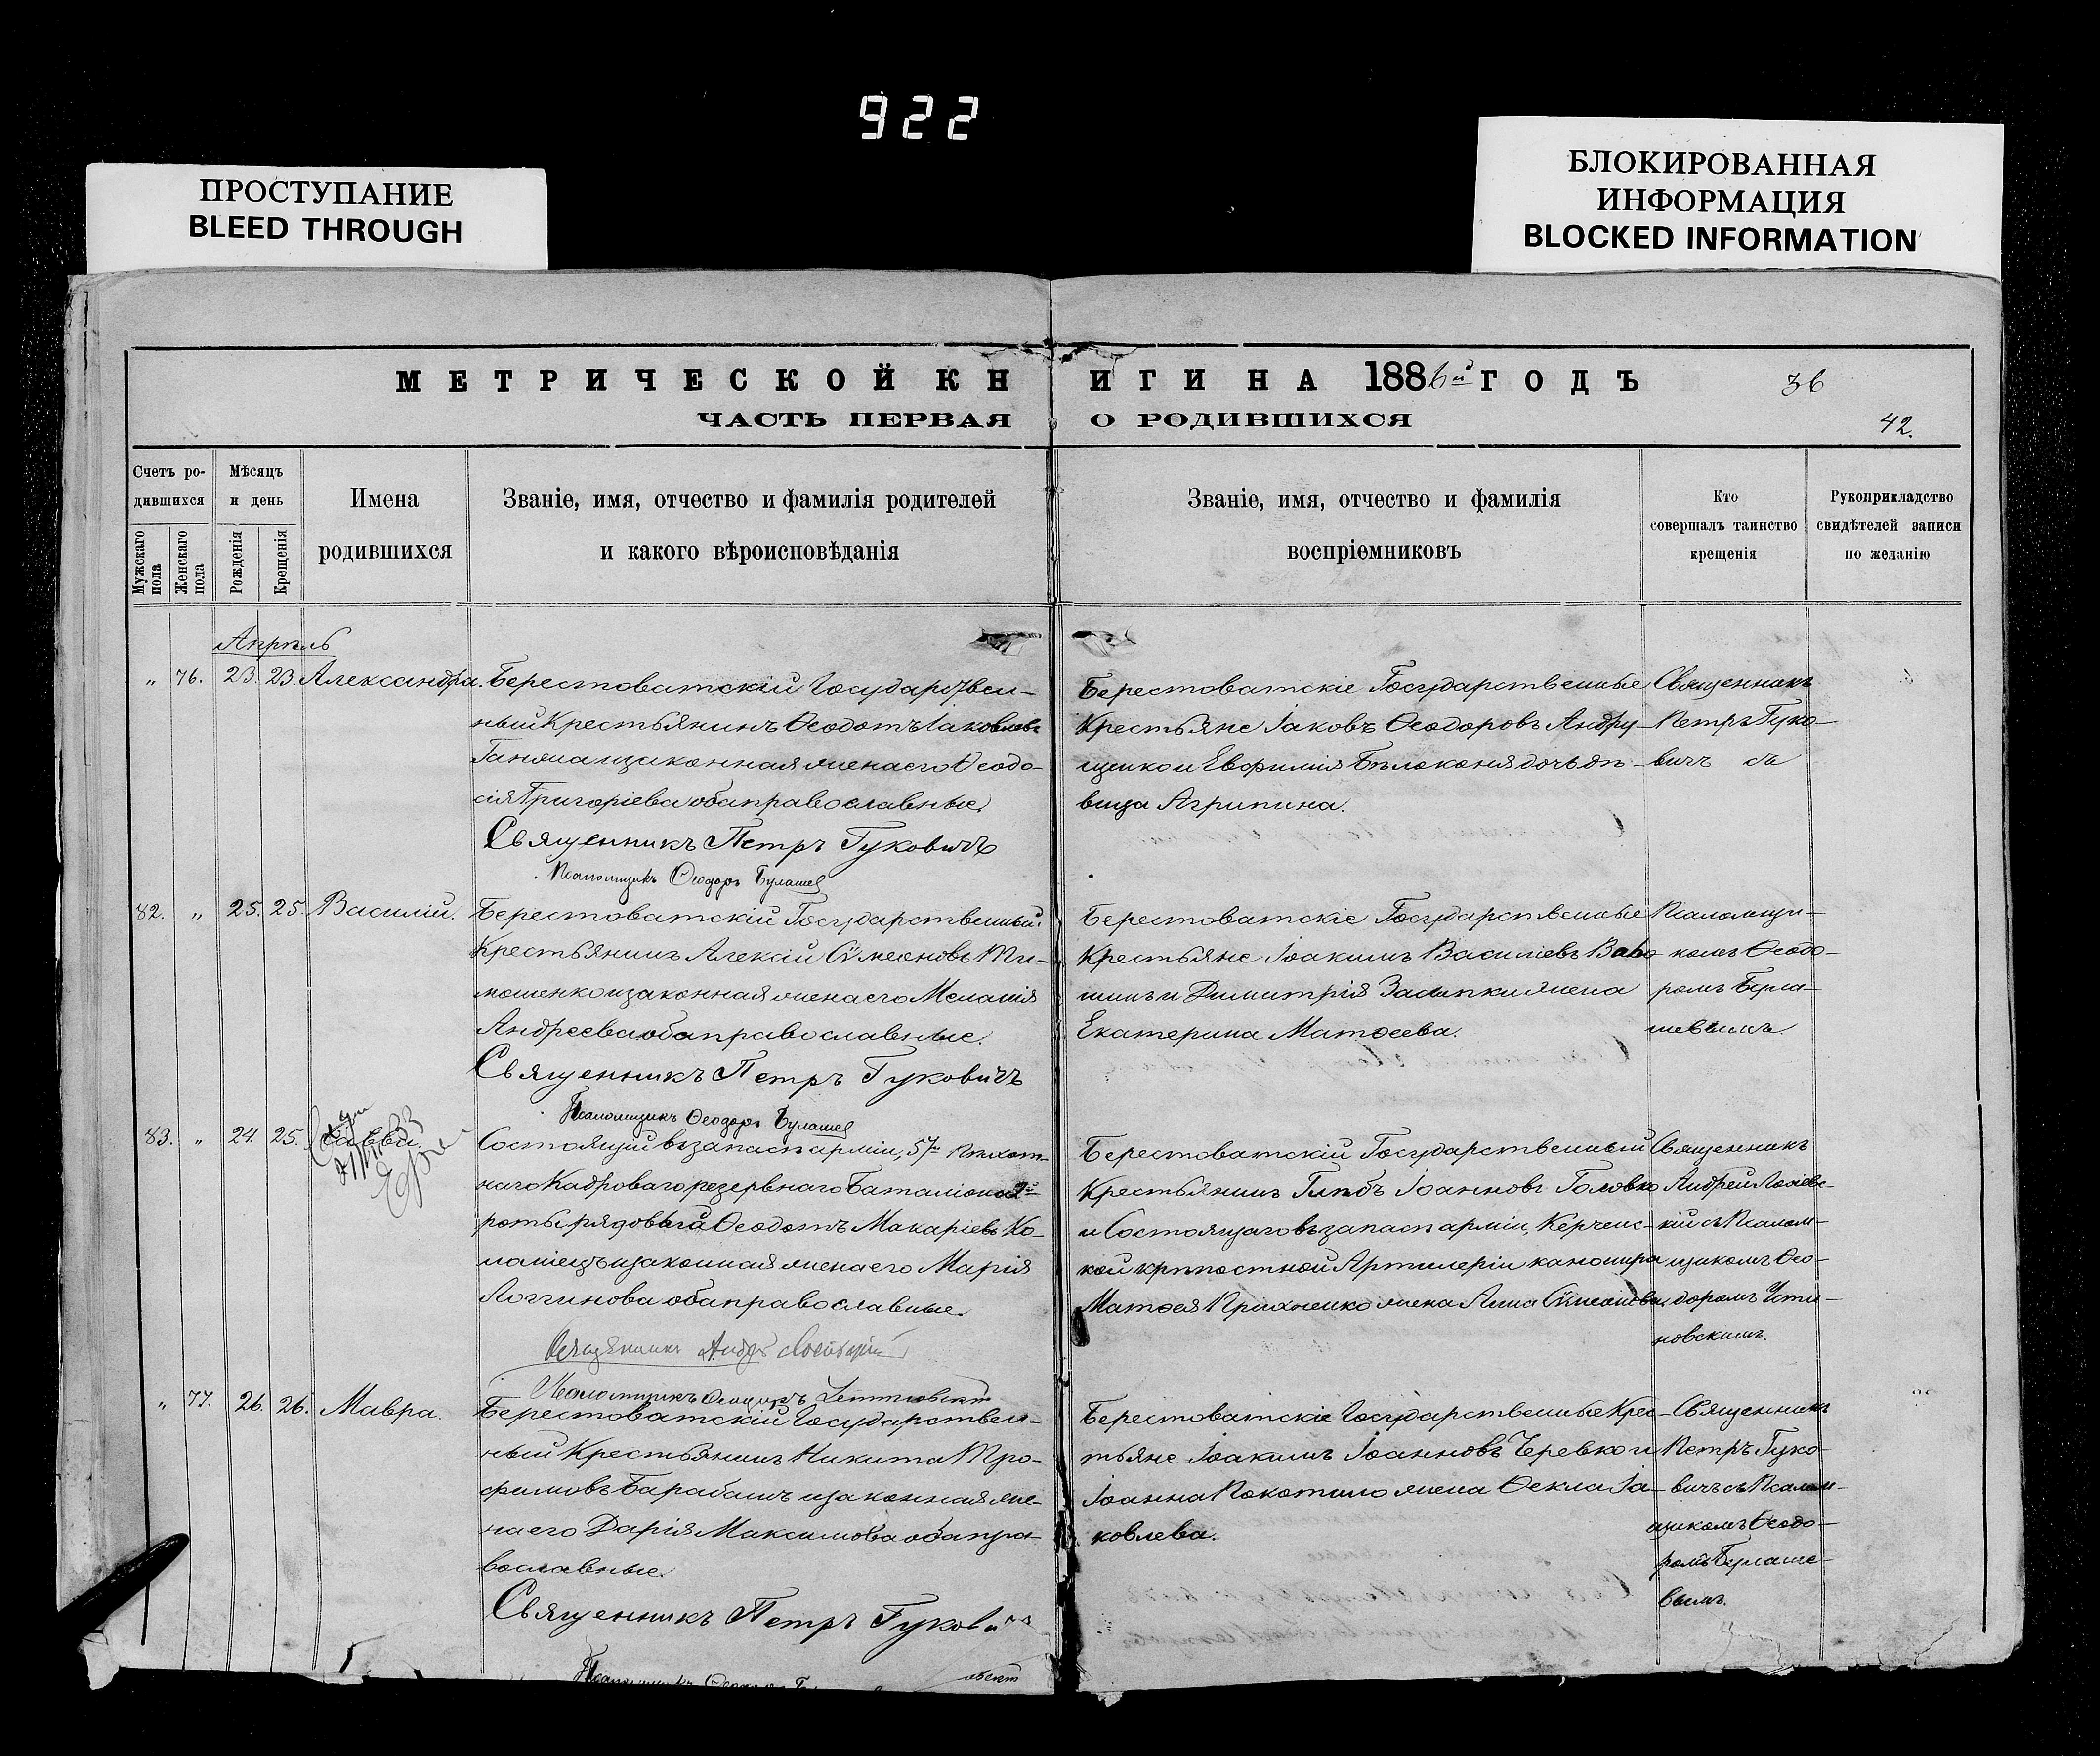 922
ПРОСТУПАНИЕ
BLEED THROUGH
БЛОКИРОВАННАЯ
ИНФОРМАЦИЯ
BLOCKED INFORMATION
МЕТРИЧЕСКОЙ КНИГИ НА 1886й ГОДЪ
36
ЧАСТЬ ПЕРВАЯ О РОДИВШИХСЯ
42.
Счетъ ро-
дившихся
Мужскаго пола
Женскаго пола
Мѣсяцъ
и день
Рожденія
Крещенія
Имена
родившихся
Званіе, имя, отчество и фамилія родителей
и какого вѣроисповѣданія
Званіе, имя, отчество и фамилія
воспріемниковъ
Кто
совершалъ таинство
крещенія
Рукоприкладство
свидѣтелей записи
по желанію
Апрѣль
„ 76. 23. 23. Александра.
Берестоватскій Государствен-
ный Крестьянинъ Ѳеодотъ Іаковлевъ
и законная жена его Ѳеодо-
сія Григоріева оба православные.
Священникъ Петръ Гуковичъ
Псаломщикъ Ѳеодоръ Булашев
Берестоватскіе Государственные
Крестьяне Іаковъ Ѳеодоровъ Андру-
щенко и Евфимія Бѣлоконя дочь дѣ-
вица Агрипина.
Священникъ
Петръ Гуко-
вичъ съ
82. „ 25. 25. Василій.
Берестоватскій Государственный
Крестьянинъ Алексій Сѷмеоновъ Ти-
мошенко и законная жена его Меланія
Андреева оба православные.
Священникъ Петръ Гуковичъ
Псаломщикъ Ѳеодоръ Булашев
Берестоватскіе Государственные
Крестьяне Іоакимъ Василіевъ
и Димитрія жена
Екатерина Матѳеева.
Псаломщи-
комъ Ѳеодо-
ромъ Була-
шевымъ.
83. „ 24. 25. Савва.
Состоящій въ запасѣ арміи, 57го пѣхот-
наго Кадроваго резервнаго Баталіона 2й
роты рядовый Ѳеодотъ Макаріевъ Ко-
ланіецъ и законная жена его Марія
Логгинова оба православные.
Священникъ
Псаломщикъ
Берестоватскій Государственный
Крестьянинъ Глѣбъ Іоанновъ Головко
и Состоящаго въ запасѣ арміи, Керченс-
кой крѣпостной Артилеріи канонира
Матѳея Прихненко жена Анна Сѷмеонова
Священникъ
Андрей
кій съ Псалом-
щикомъ Ѳео-
доромъ Усти-
новскимъ.
„ 77. 26. 26. Мавра.
Берестоватскій Государствен-
ный Крестьянинъ Никита Тро-
фимовъ Барабашъ и законная же-
на его Дарія Максимова оба пра-
вославные.
Священникъ Петръ Гуковичъ
Псаломщикъ Ѳеодоръ
Берестоватскіе Государственные Крес-
тьяне Іоакимъ Іоанновъ Черевко и
Іоанна Покотило жена Ѳекла Іа-
ковлева.
Священникъ
Петръ Гуко-
вичъ съ Псалом-
щикомъ Ѳеодо-
ромъ Булаше-
вымъ.